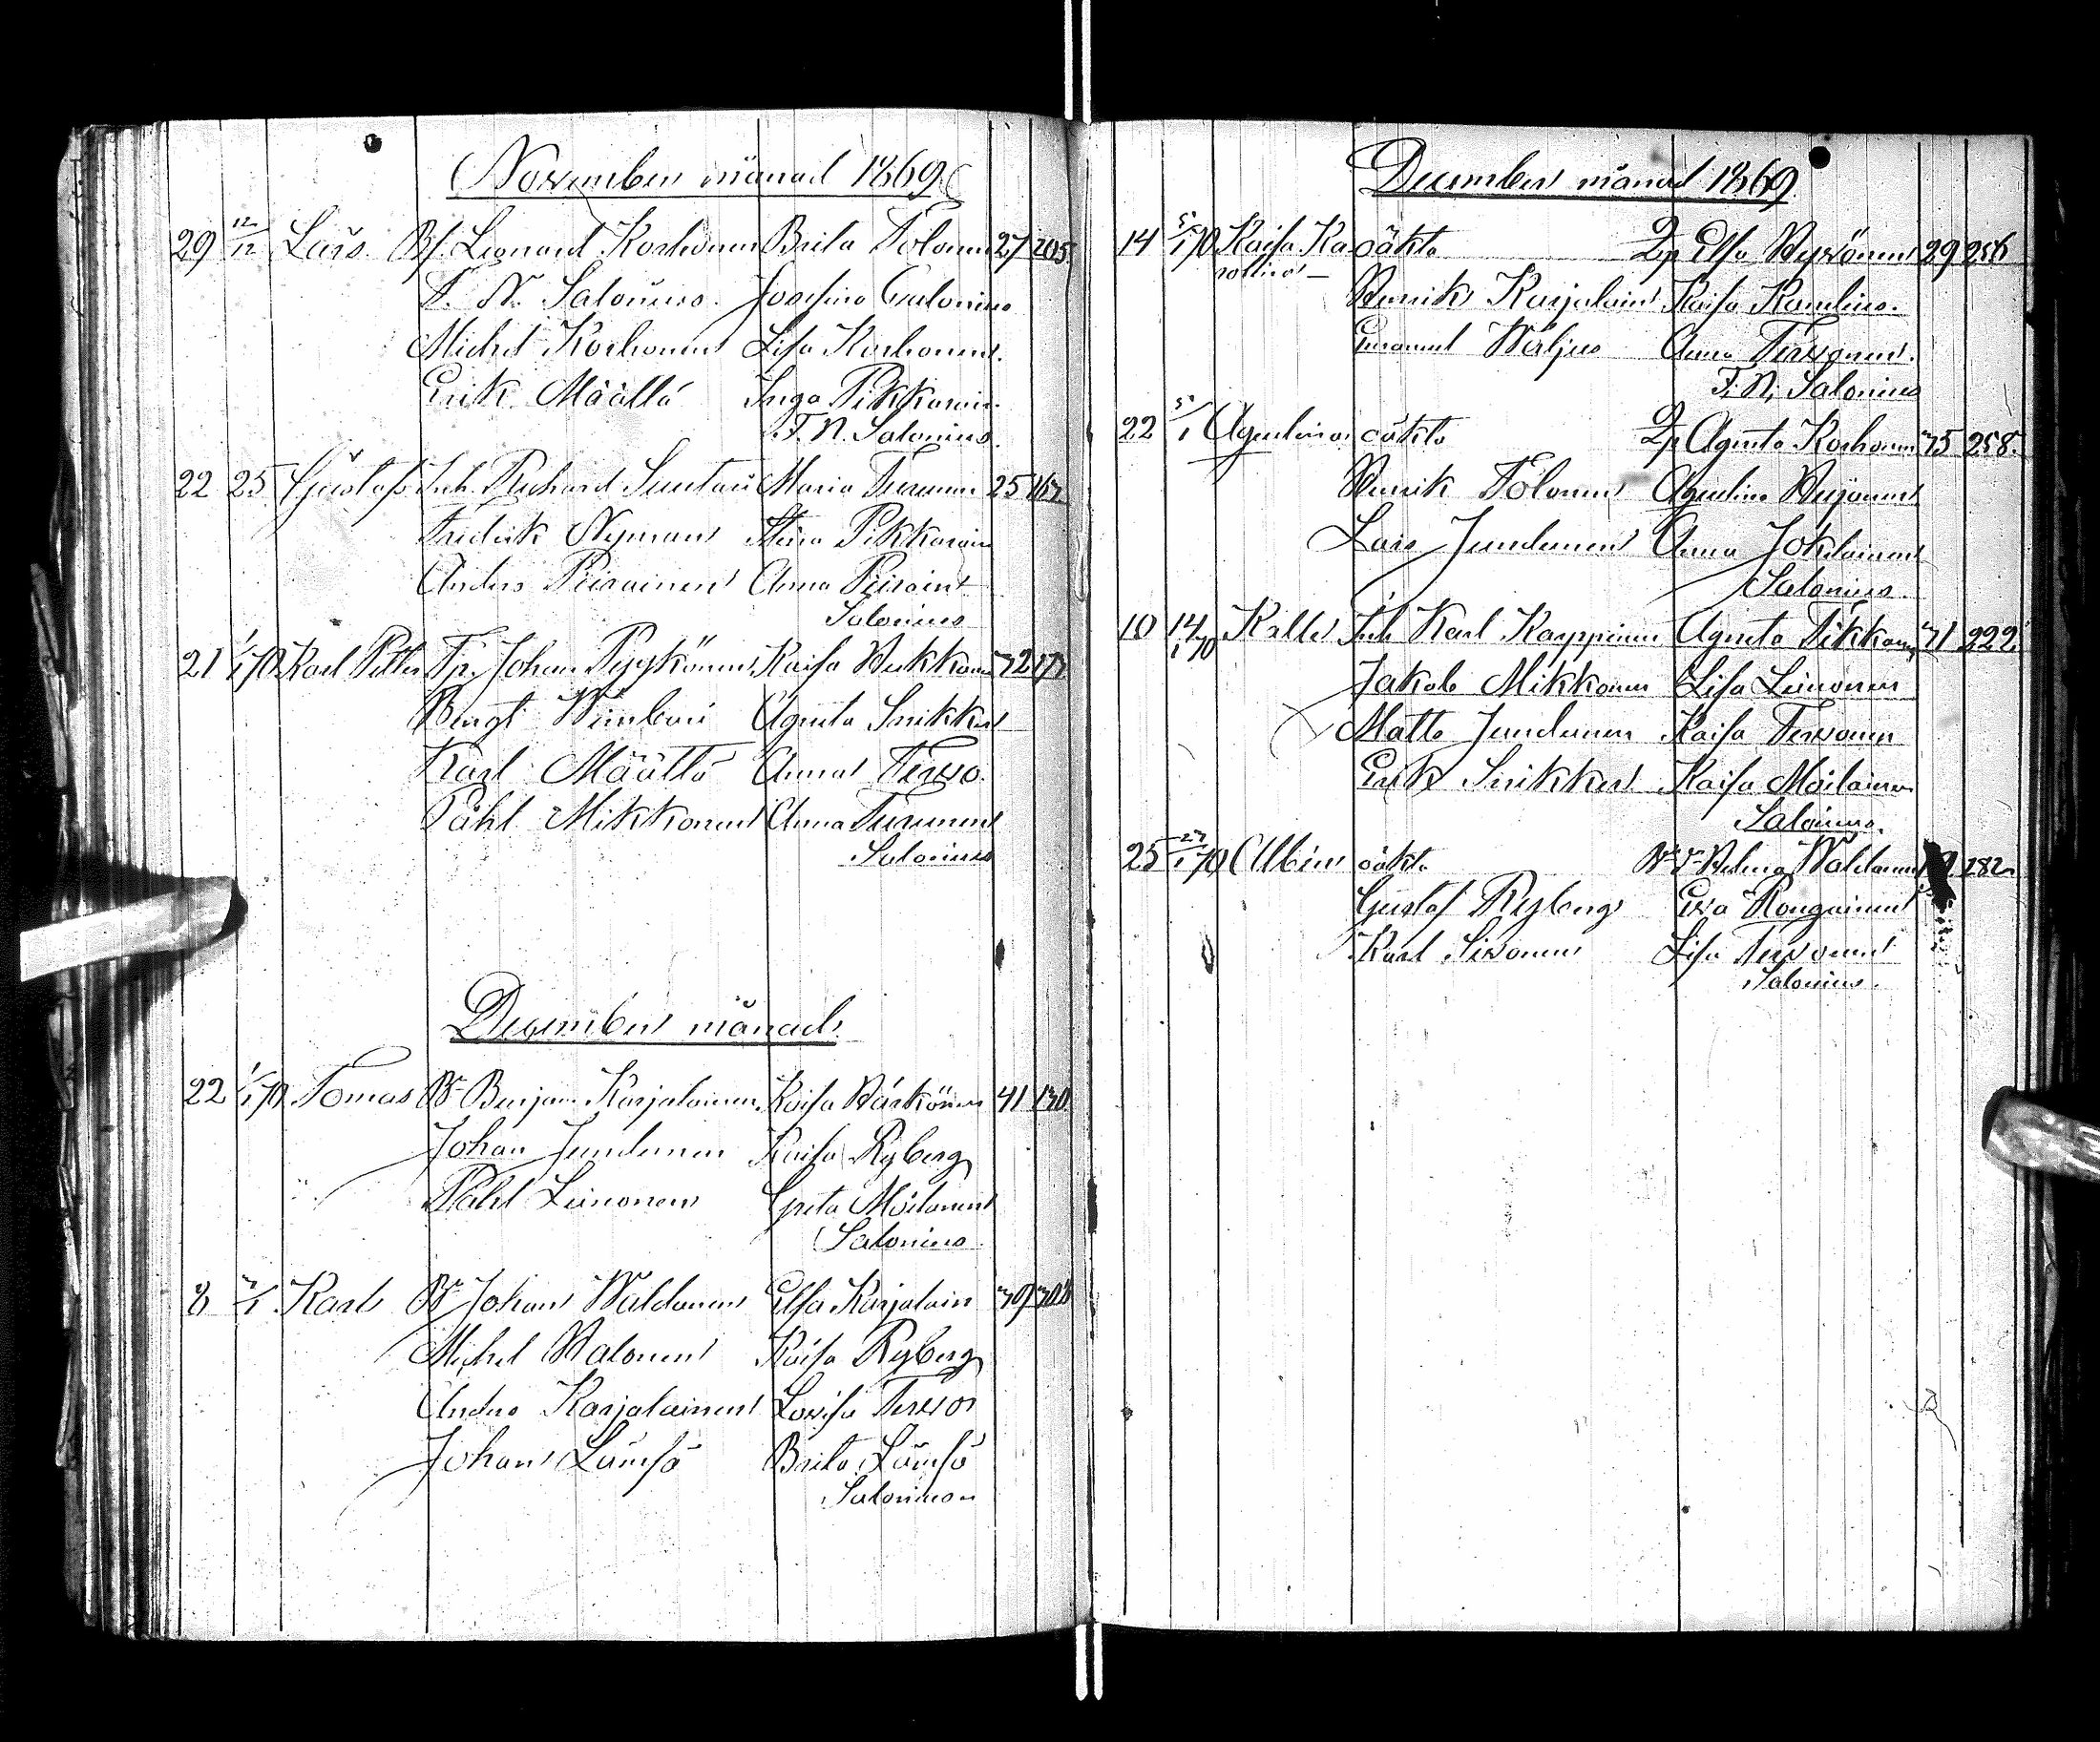 November månad 1869
29 12/12 Lars Bf. Leonard Korhonen Brita Tolonen 27 205
F. N. Salonius Josefina Calonius
Michel Korhonen Lisa Korhonen
Erik Määttä Inga Pikkarain
F. N. Salonius
22 25 Gustaf Inh. Richard Suutari Maria Turunen 25 167
Fredrik Nyman Stina Pikkarain
Anders Piirainen Anna Piirain
Salonius
21 1/1 70 Karl Petter Tp. Johan Pyykönen Kaisa Wukkon 32 171
Bengt Wimbari Agneta Snikkar
Karl Määttä Anna Terwo
Påhl Mikkonen Anna Turunen
Salonius
December månad
22 1/1 70 Tomas Bf Benjam Karjalainen Kaisa Härkönen 41 130
Johan Jundunen Kaisa Ryberg
Påhl Leinonen Greta Moilanen
Salonius
8 2/1 Karl Bf Johan Waldanen Elsa Karjalain 30 308
Michel Halonen Kaisa Ryberg
Anders Karjalainen Lovisa Terwo
Johan Lämsä Brita Lämsä
Salonius
December månad 1869
14 5/1 70 Kaisa Karolina oäkta Qp Elsa Wyrönen 29 256
Henrik Karjalain Kaisa Komlin
Emanuel Wäljus Anna Terwonen
F. N. Salonius
22 5/1 Agulina oäkta Qp Agneta Korhonen 35 258
Henrik Tolonen Agulina Heijonen
Lars Jundunen Anna Jokelainen
Salonius
10 14/1 70 Kalle Inh Karl Karppinen Agneta Tikkanen 31 222
Jakob Mikkonen Lisa Leinonen
Matts Jundunen Kaisa Terwonen
Erik Snikkar Kaisa Moilainen
Salonius
25 23/1 70 Albin oäkta Helena Waldanen 282
Gustaf Ryberg Ewa Rongainen
Karl Siwonen Lisa Terwonen
Salonius